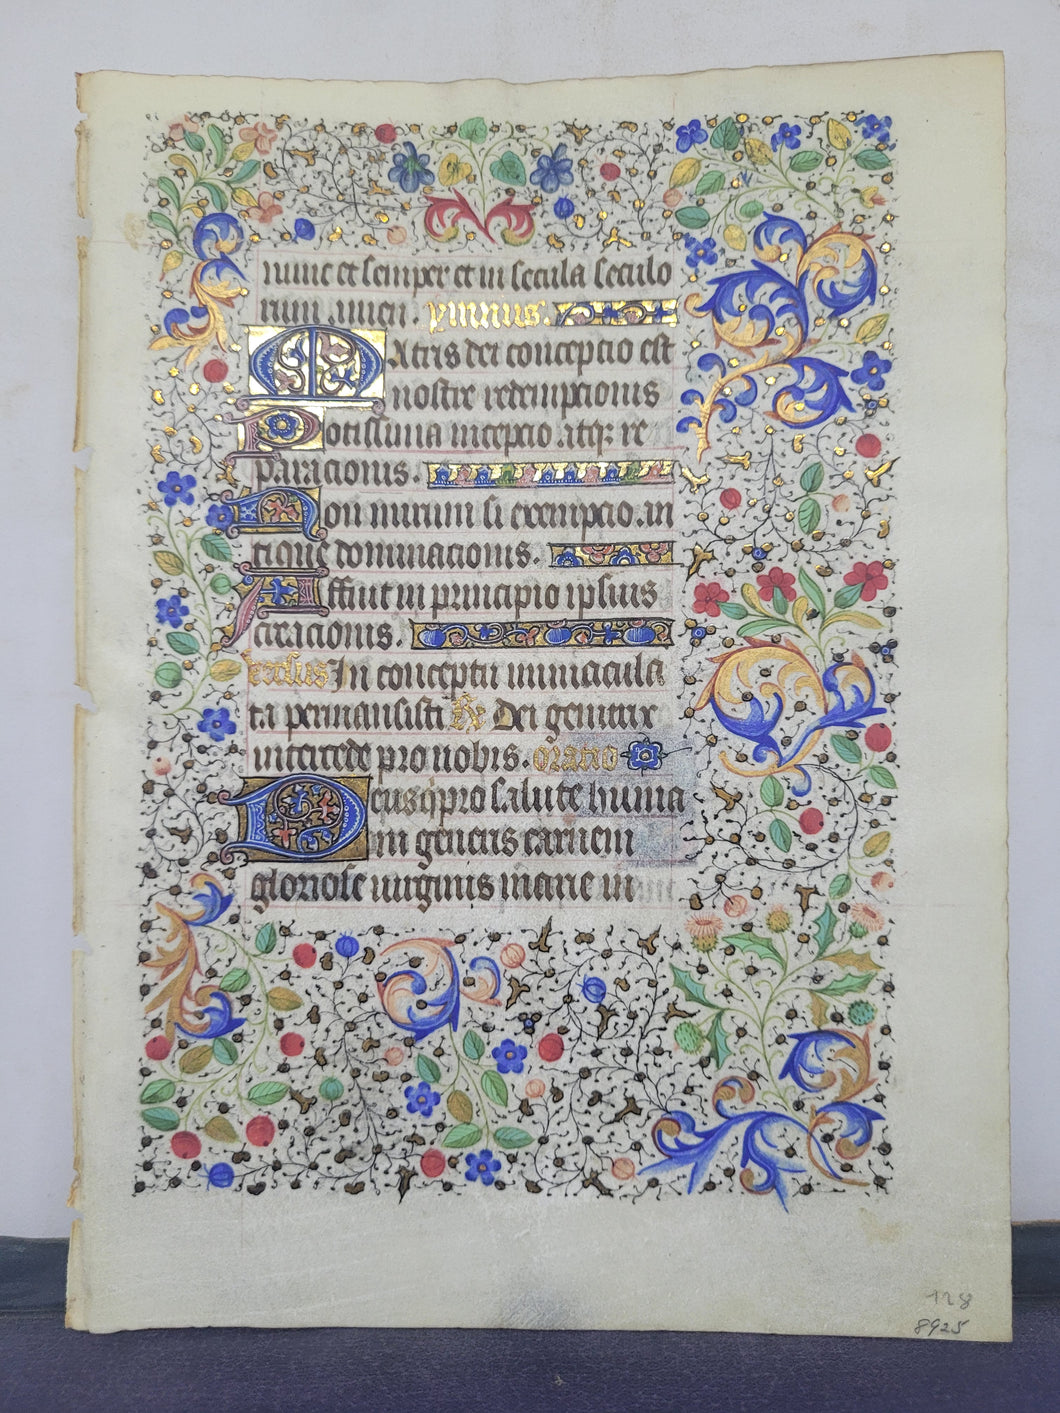 nunc et semper et in secula seculo
rum amen. ymnus.
Matris dei conceptio est
nostre redempcionis
Potissima incepcio atq; re
paracionis.
Non mirum si exempcio an
tique dominacionis.
Affuit in principio ipsius
creacionis.
versus In conceptu immacula
ta permansisti ℟ Dei genitrix
intercede pro nobis. oratio
Deus q̇ pro salute huma
ni generis carnem
gloriose uirginis marie in
128
8925